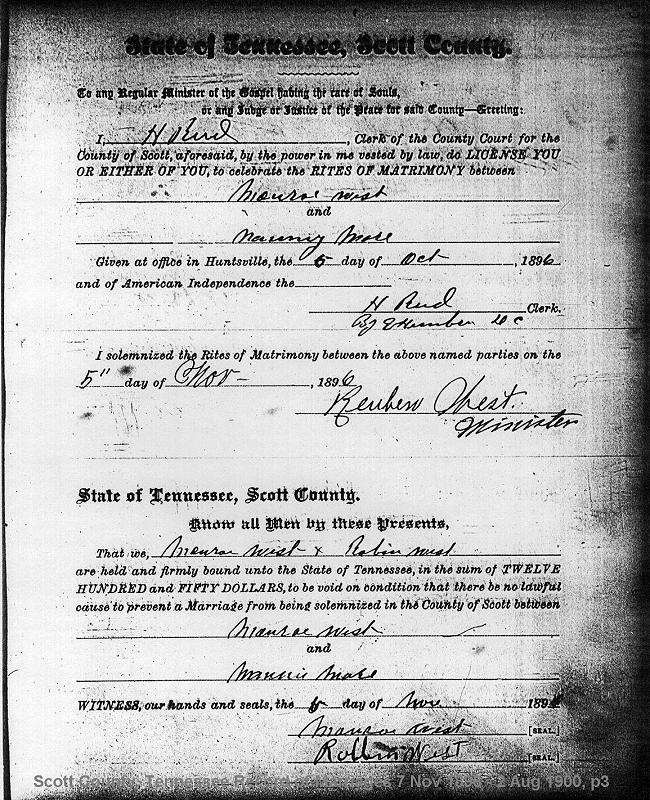 State of Tennessee, Scott County.
To any Regular Minister of the Gospel having the care of Souls,
or any Judge or Justice of the Peace for said County—Greeting:
I, H Reed, Clerk of the County Court for the
County of Scott, aforesaid, by the power in me vested by law, do LICENSE YOU
OR EITHER OF YOU, to celebrate the RITES OF MATRIMONY between
Monroe West
and
Mose
Given at office in Huntsville, the 5 day of Oct, 1896
and of American Independence the
H Reed Clerk.
By DC
I solemnized the Rites of Matrimony between the above named parties on the
5" day of Nov, 1896
Reuben West.
Minister
State of Tennessee, Scott County.
Know all Men by these Presents,
That we, Monroe West & Robin West
are held and firmly bound unto the State of Tennessee, in the sum of TWELVE
HUNDRED and FIFTY DOLLARS, to be void on condition that there be no lawful
cause to prevent a Marriage from being solemnized in the County of Scott between
Monroe West
and
Mose
WITNESS, our hands and seals, the 5 day of Nov 189
Monroe West [SEAL.]
West [SEAL.]
Scott County, Tennessee 7 Nov Aug 1900, p3